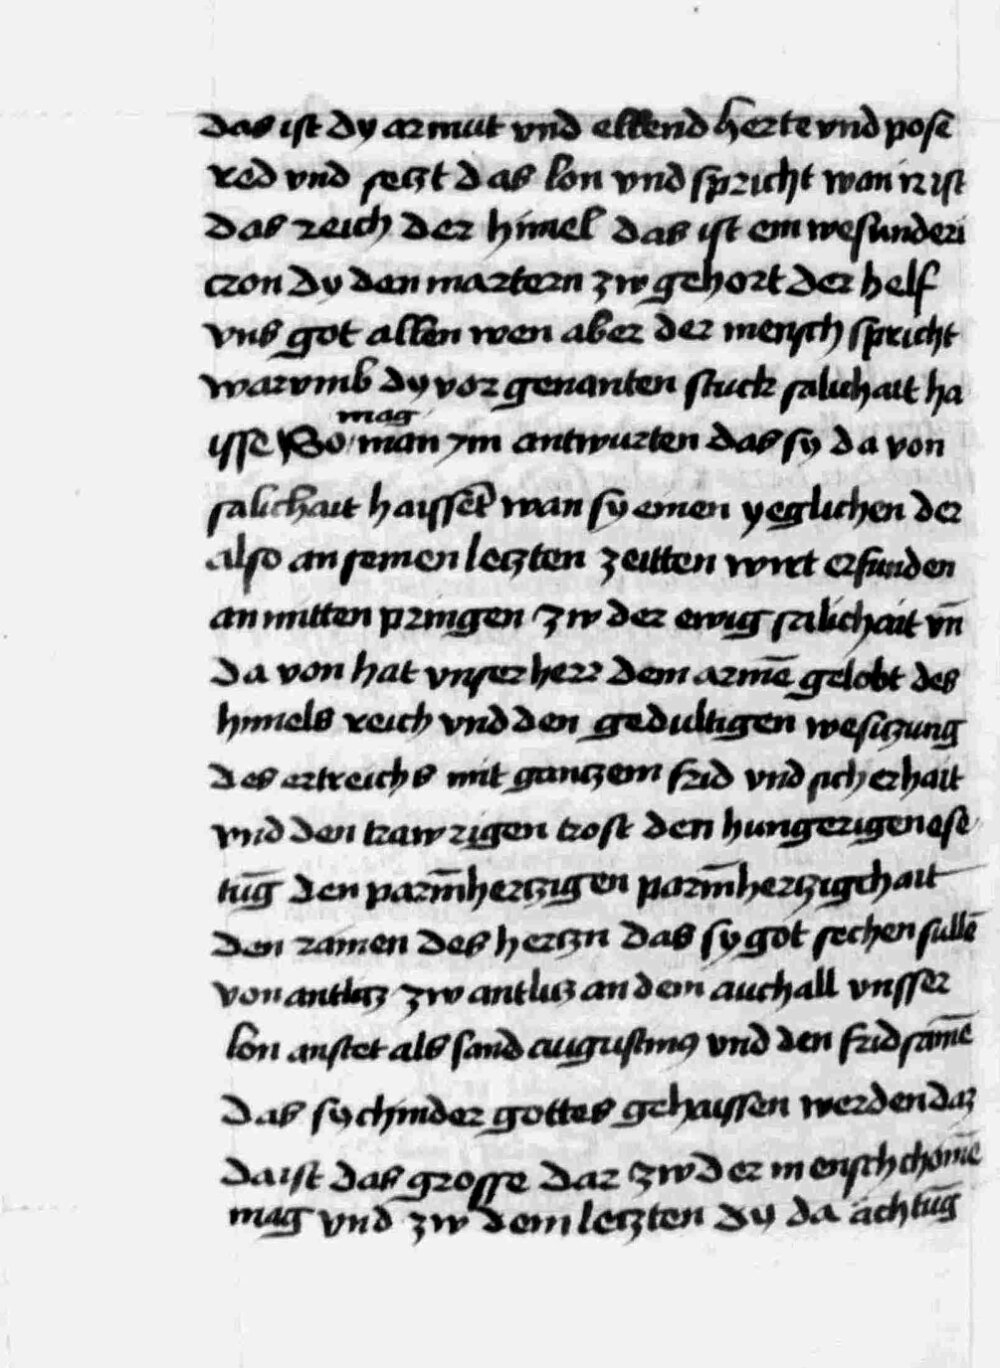 das ist dy armut vnd ellend herte vnd pose
red vnd setzt das lon vnd spricht wan ir ist
das reich der himel das ist ein wesunderi
cron dy den martern zw gehort der helf
vns got allen wen aber der mensch spricht
warvmb dy vor genanten stuck salichait ha
isse So mag man ym antwurten das sy da von
salichait haissent wan sy einen yeglichen der
also an seinen letzten zeitten wirt erfunden
an mitten pringen zw der ewig salichait vn̄
da von hat vnser herr dem armē gelobt des
himels reich vnd den gedultigen wesitzung
des ertreichs mit gantzem frid vnd sicherhait
vnd den trawrigen trost den hungerigen ese
tūg den parm̄hertzigen parm̄hertzigchait
den rainen des hertzn das sy got sechen sullē
von antlitz zw antlitz an dem auch all vnsser
lon anstet als sand augustinus vnd den fridsamē
das sy chinder gottes gehaissen werden daz
da ist das grosse dar zw der mensch chomē
mag vnd zw dem letzten dy da ächtūg